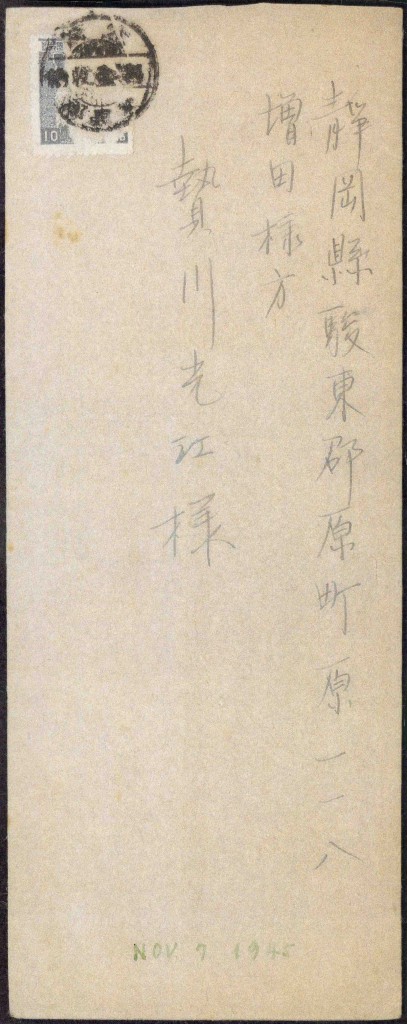 靜岡縣駿東郡原町原一一八
増田様方
贄川光江様
10
NOV. 7 1945